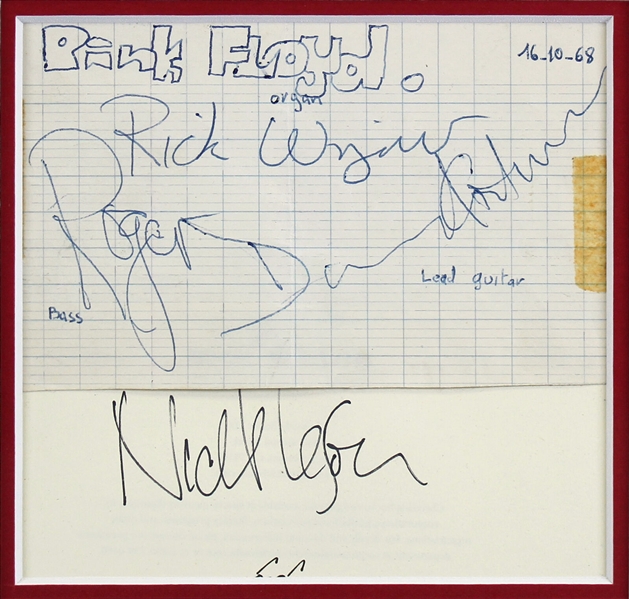 Pink Floyd. 16-10-68
organ
Rick Wright
Roger
Dave
Lead guitar
Bass
Nick Mason